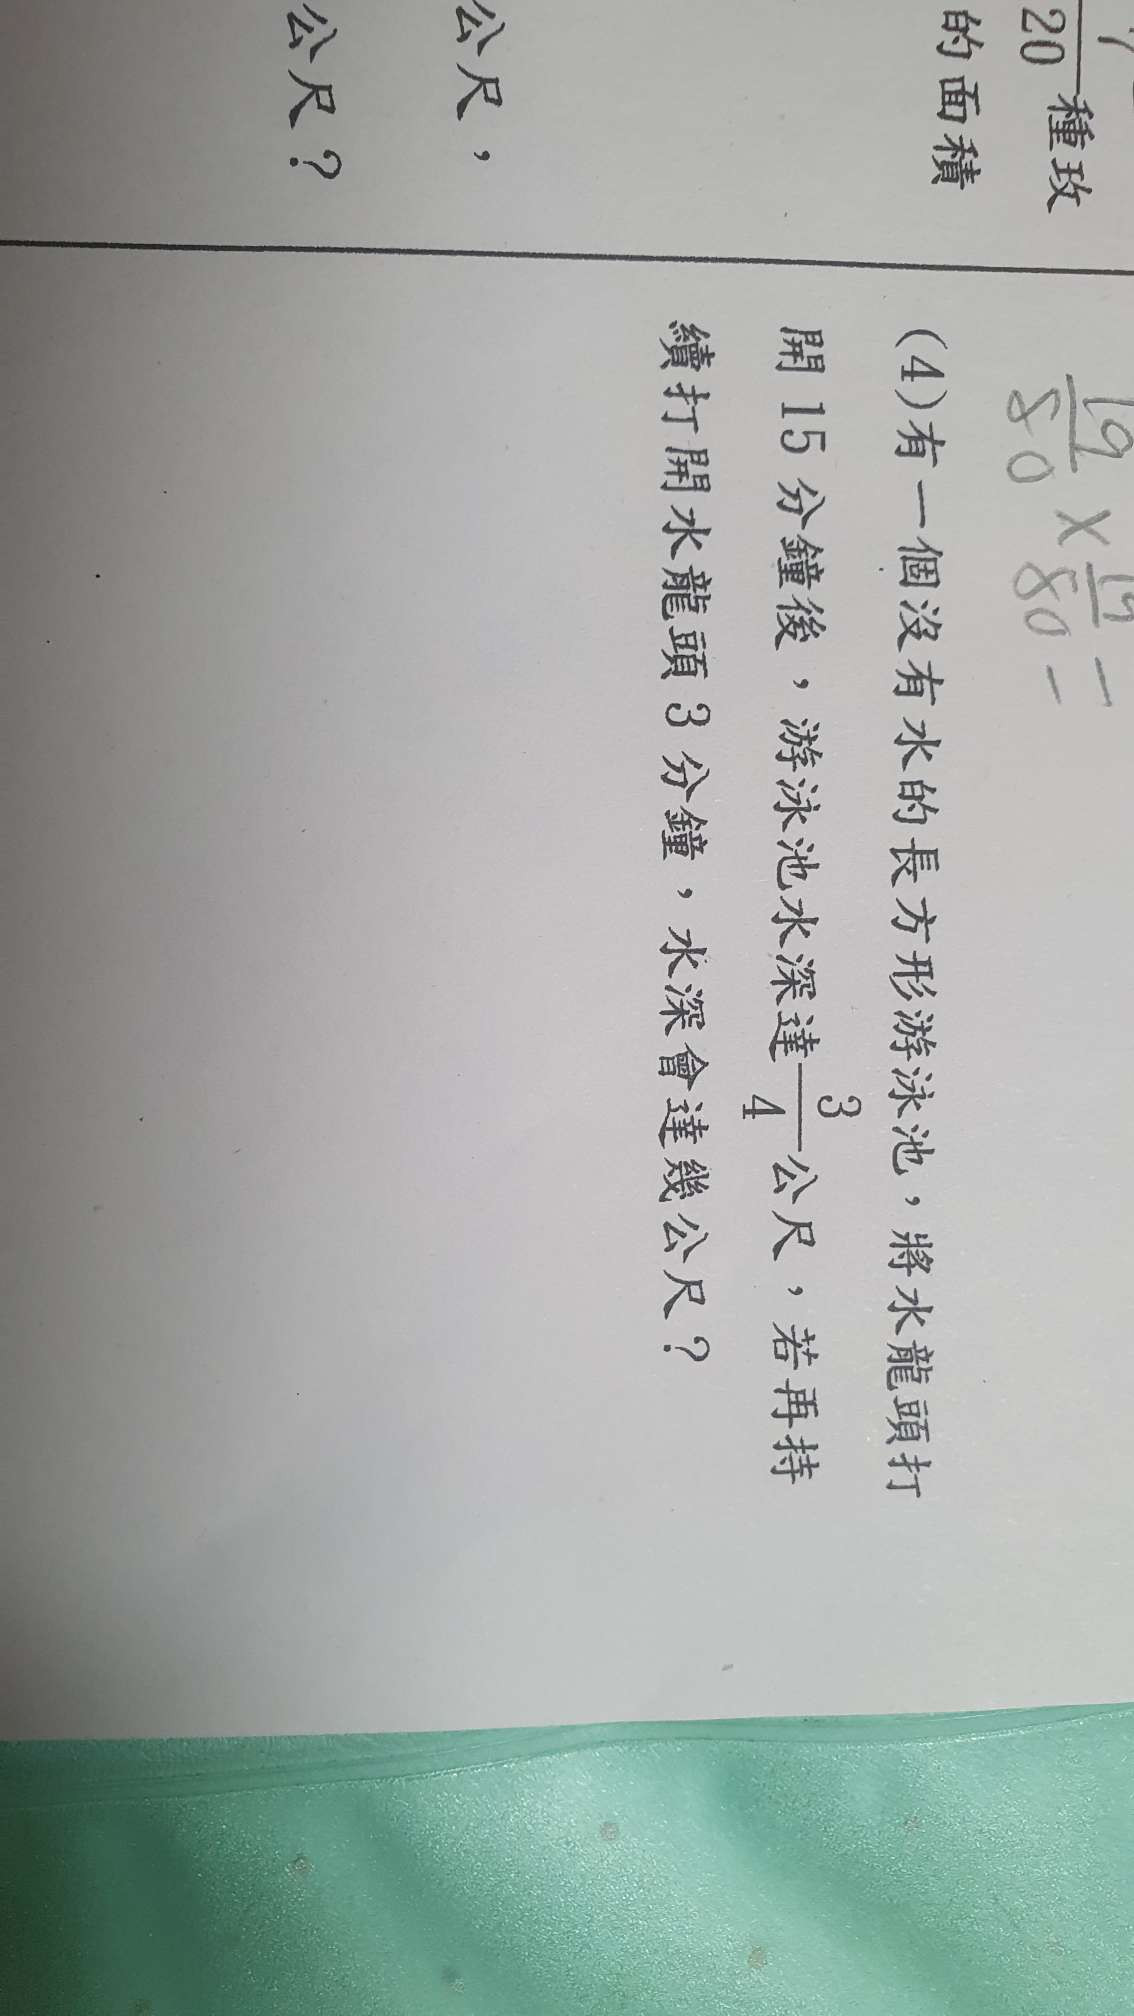 20種玫
的面積
公尺，
公尺？
19/80 × 19/80 =
(4)有一個沒有水的長方形游泳池，將水龍頭打
開 15 分鐘後，游泳池水深達3/4公尺，若再持
續打開水龍頭 3 分鐘，水深會達幾公尺？